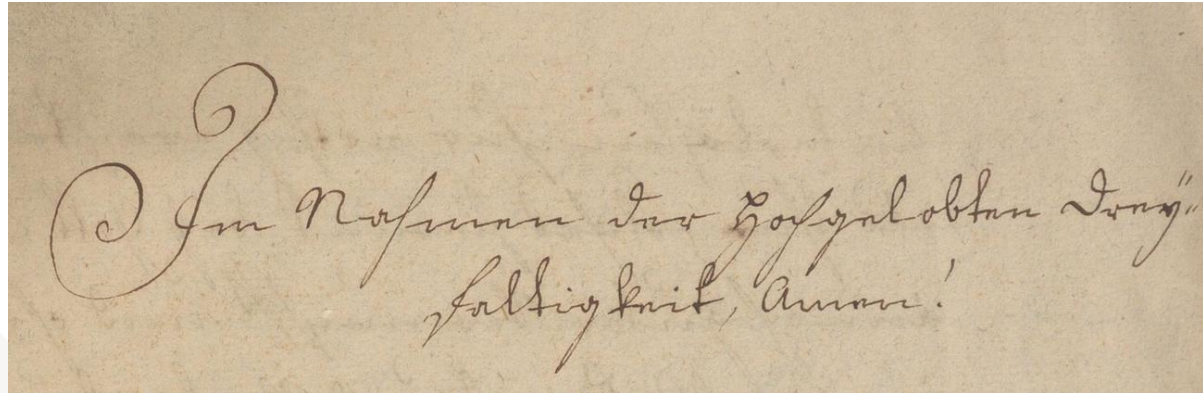 Im Nahmen der Hochgelobten Dreÿ⸗
faltigkeit, Amen!